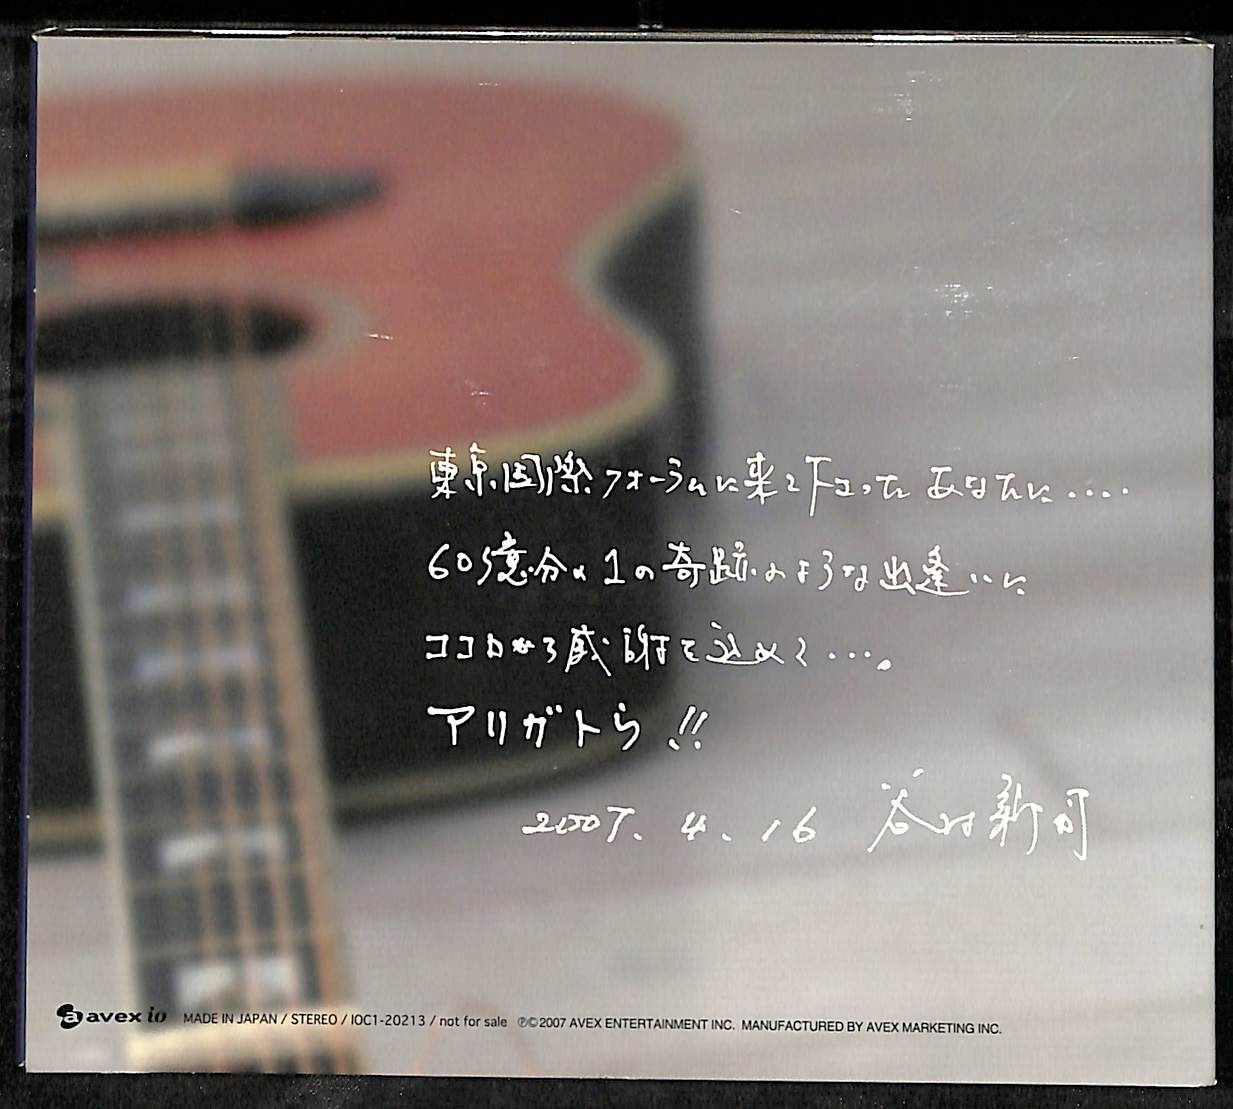 東京国際フォーラムに来て下さった あなたに....
60億分の1の奇跡のような出逢いに
ココロから感謝を込めて...。
アリガトウ !!
2007. 4. 16 谷村新司
avex io MADE IN JAPAN / STEREO / IOC1-20213 / not for sale ℗©2007 AVEX ENTERTAINMENT INC. MANUFACTURED BY AVEX MARKETING INC.